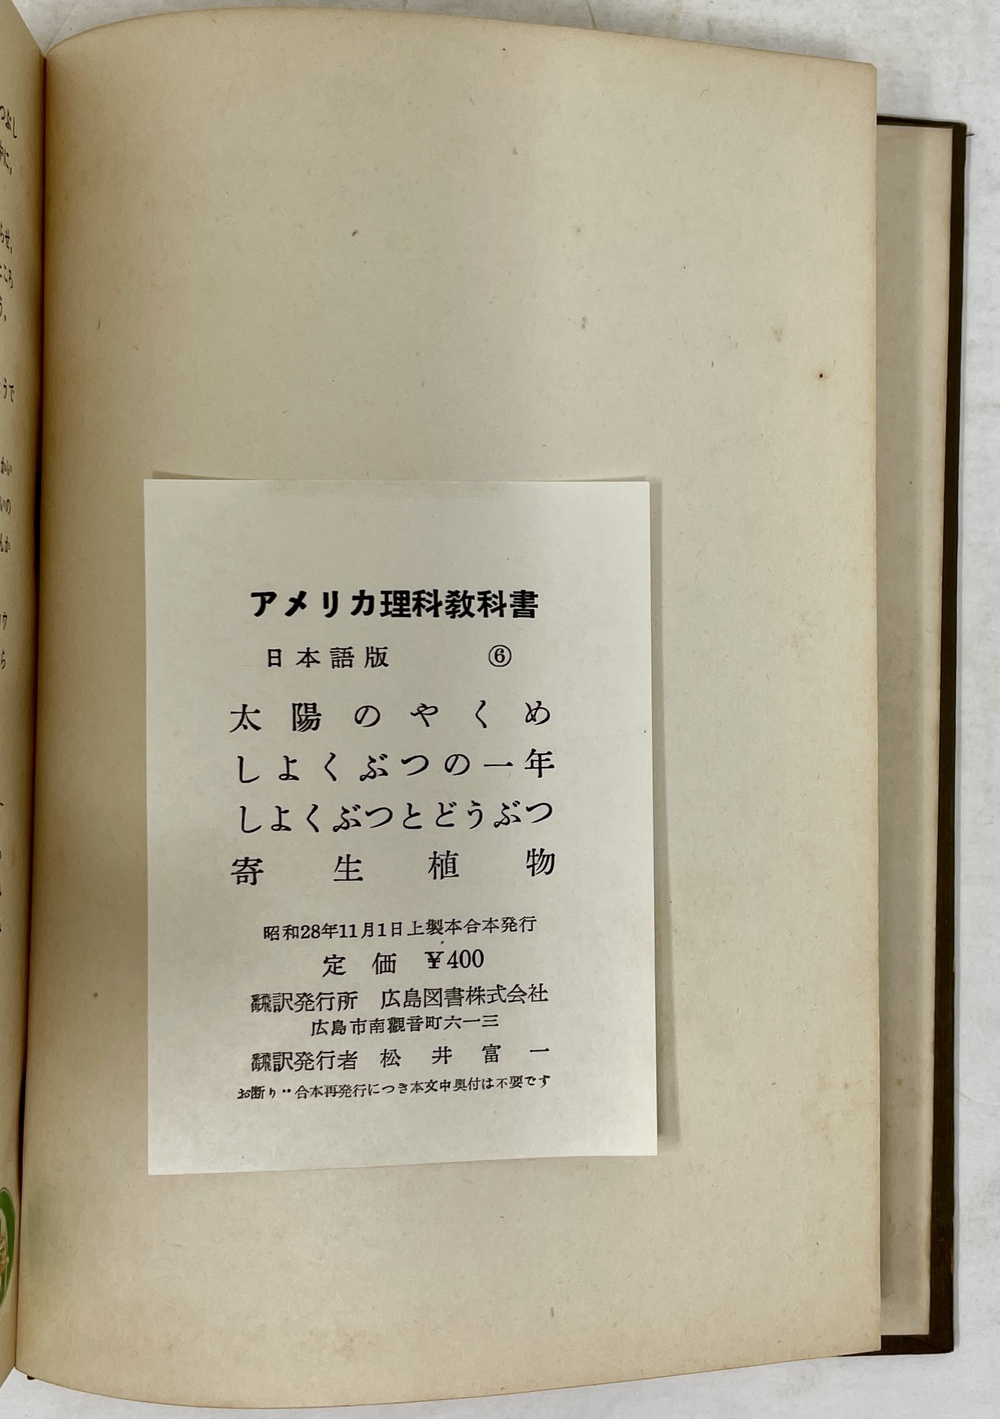 アメリカ理科教科書
日本語版 ⑥
太陽のやくめ
しよくぶつの一年
しよくぶつとどうぶつ
寄生植物
昭和28年11月1日上製本合本発行
定価 ¥400
飜訳発行所 広島図書株式会社
広島市南観音町六一三
飜訳発行者 松井富一
お断り‥合本再発行につき本文中奥付は不要です